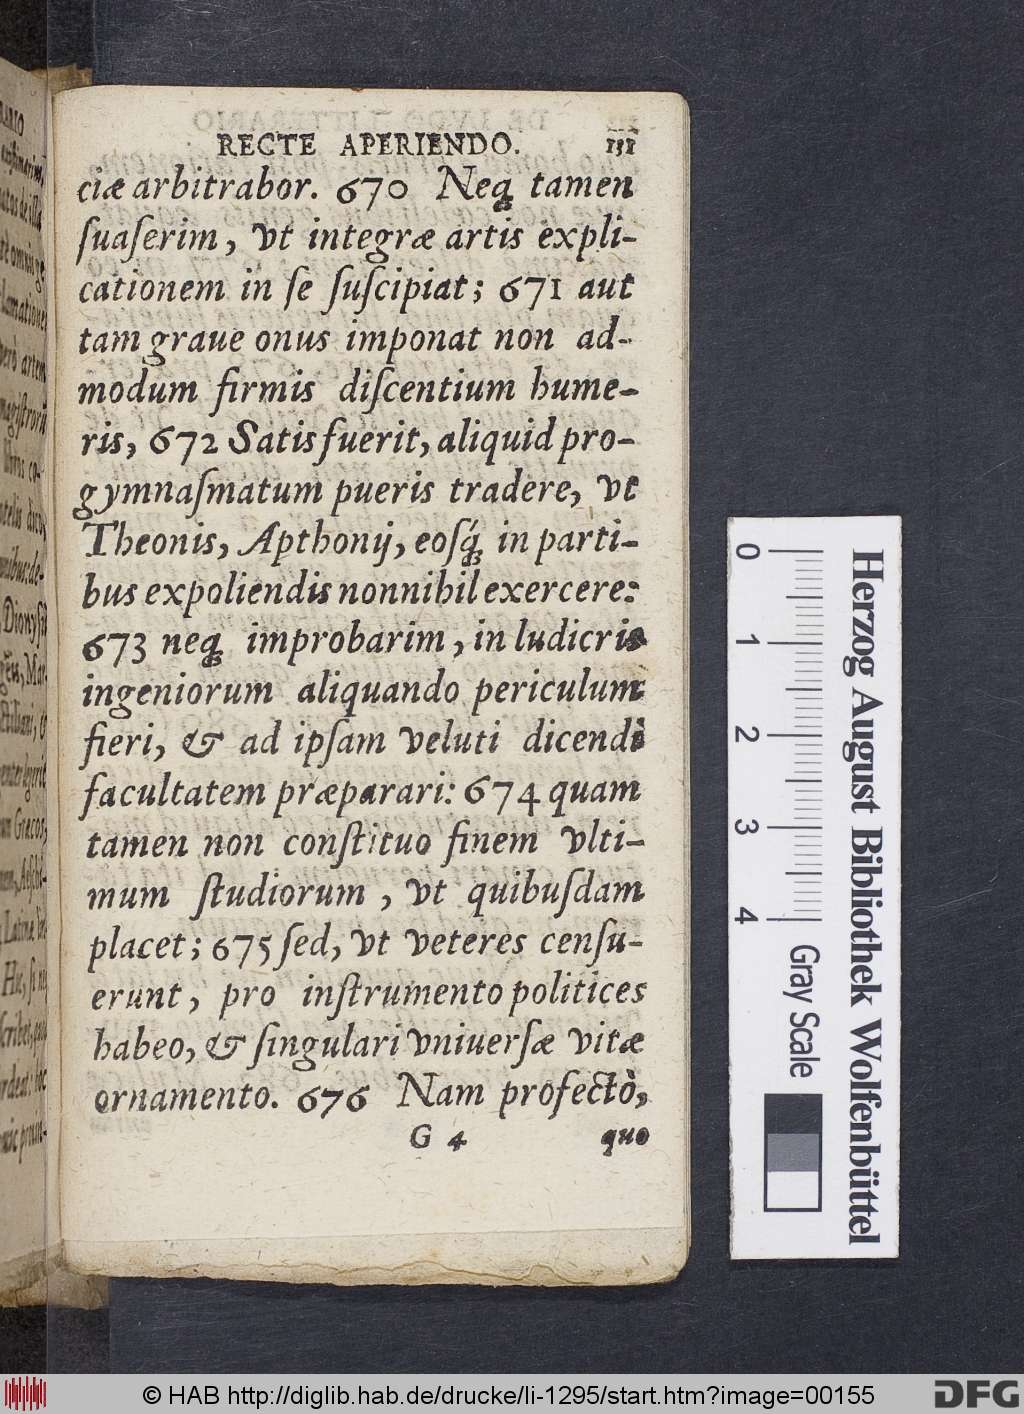 RECTE APERIENDO. 151
ciæ arbitrabor. 670 Neq́; tamen
ſuaſerim, vt integræ artis expli-
cationem in ſe ſuſcipiat; 671 aut
tam graue onus imponat non ad-
modum firmis diſcentium hume-
ris, 672 Satis fuerit, aliquid pro-
gymnaſmatum pueris tradere, vt
Theonis, Apthonij, eoſq́; in parti-
bus expoliendis nonnihil exercere:
673 neq; improbarim, in ludicris
ingeniorum aliquando periculum
fieri, & ad ipſam veluti dicendi
facultatem præparari: 674 quam
tamen non conſtituo finem vlti-
mum ſtudiorum, vt quibuſdam
placet; 675 ſed, vt veteres cenſu-
erunt, pro inſtrumento politices
habeo, & ſingulari vniuerſæ vitæ
ornamento. 676 Nam profectò,
G 4 quo
0 1 2 3 4
Gray Scale
Herzog August Bibliothek Wolfenbüttel
© HAB http://diglib.hab.de/drucke/li-1295/start.htm?image=00155
DFG